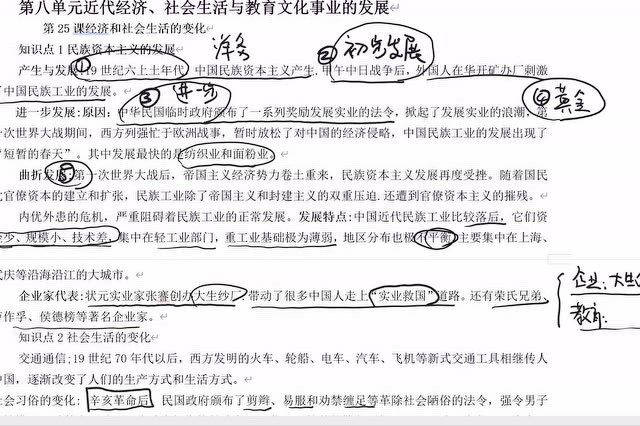 第八单元近代经济、社会生活与教育文化事业的发展
第25课经济和社会生活的变化
知识点1民族资本主义的发展
洋务
② 初步发展
产生与发展:①19世纪六七十年代,中国民族资本主义产生.甲午中日战争后,外国人在华开矿办厂刺激
了中国民族工业的发展。
③ 进一步
④ 黄金
进一步发展:原因:中华民国临时政府颁布了一系列奖励发展实业的法令,掀起了发展实业的浪潮,第
一次世界大战期间,西方列强忙于欧洲战事,暂时放松了对中国的经济侵略,中国民族工业的发展出现了
“短暂的春天”。其中发展最快的是纺织业和面粉业。
曲折发展:⑤第一次世界大战后,帝国主义经济势力卷土重来,民族资本主义发展再度受挫。随着国民
官僚资本的建立和扩张,民族工业除了帝国主义和封建主义的双重压迫.还遭到官僚资本的摧残。
内优外患的危机,严重阻碍着民族工业的正常发展。发展特点:中国近代民族工业比较落后,它们资
少、规模小、技术差,集中在轻工业部门,重工业基础极为薄弱,地区分布也极不平衡,主要集中在上海、
庆等沿海沿江的大城市。
企业:大生
企业家代表:状元实业家张謇创办大生纱厂,带动了很多中国人走上“实业救国”道路。还有荣氏兄弟、
作孚、侯德榜等著名企业家。
教育:
知识点2社会生活的变化
交通通信:19世纪70年代以后,西方发明的火车、轮船、电车、汽车、飞机等新式交通工具相继传人
中国,逐渐改变了人们的生产方式和生活方式。
会习俗的变化:辛亥革命后,民国政府颁布了剪辫、易服和劝禁缠足等革除社会陋俗的法令,强令男子